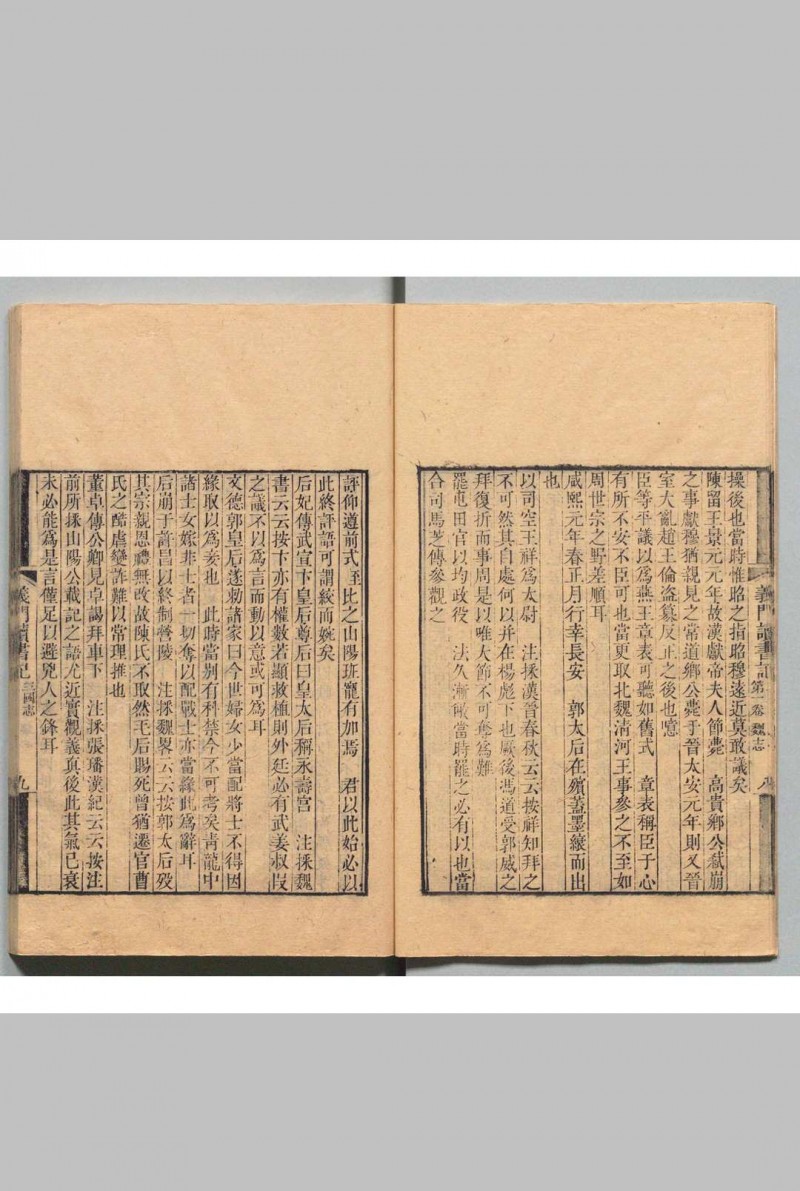 義門讀書記 第一卷 魏志 八
操後也當時惟昭之指昭穆遠近莫敢議矣
陳留王景元元年故漢獻帝夫人節薨 高貴鄉公弒崩
之事獻穆猶親見之常道鄉公薨于晉太安元年則又晉
室大亂趙王倫盜篡反正之後也噫
臣等平議以爲燕王章表可聽如舊式 章表稱臣于心
有所不安不臣可也當更取北魏清河王事參之不至如
周世宗之野差順耳
咸熙元年春正月行幸長安 郭太后在殯蓋墨縗而出
也
以司空王祥爲太尉 注採漢晉春秋云云按祥知拜之
不可然其自處何以并在楊彪下也厥後馮道受郭威之
拜復折而事周是以唯大節不可奪爲難
罷屯田官以均政役 法久漸敝當時罷之必有以也當
合司馬芝傳參觀之
評仰遵前式至比之山陽班寵有加焉 君以此始必以
此終評語可謂絞而婉矣
后妃傳武宣卞皇后尊后曰皇太后稱永壽宮 注採魏
書云云按卞亦有權數若顯救植則外廷必有武姜叔段
之議不以爲言而動以意或可爲耳
文德郭皇后遂勅諸家曰今世婦女少當配將士不得因
緣取以爲妾也 此時當別有科禁今不可考矣青龍中
諸士女嫁非士者一切奪以配戰士亦當緣此爲辭耳
后崩于許昌以終制營陵 注採魏畧云云按郭太后歿
其宗親恩禮無改故陳氏不取然毛后賜死曾猶遷官曹
氏之酷虐變詐難以常理推也
董卓傳公卿見卓謁拜車下 注採張璠漢紀云云按注
前所採山陽公載記之語尤近實觀義真後此其氣已衰
未必能爲是言僅足以避兇人之鋒耳
義門讀書記 三國志 九